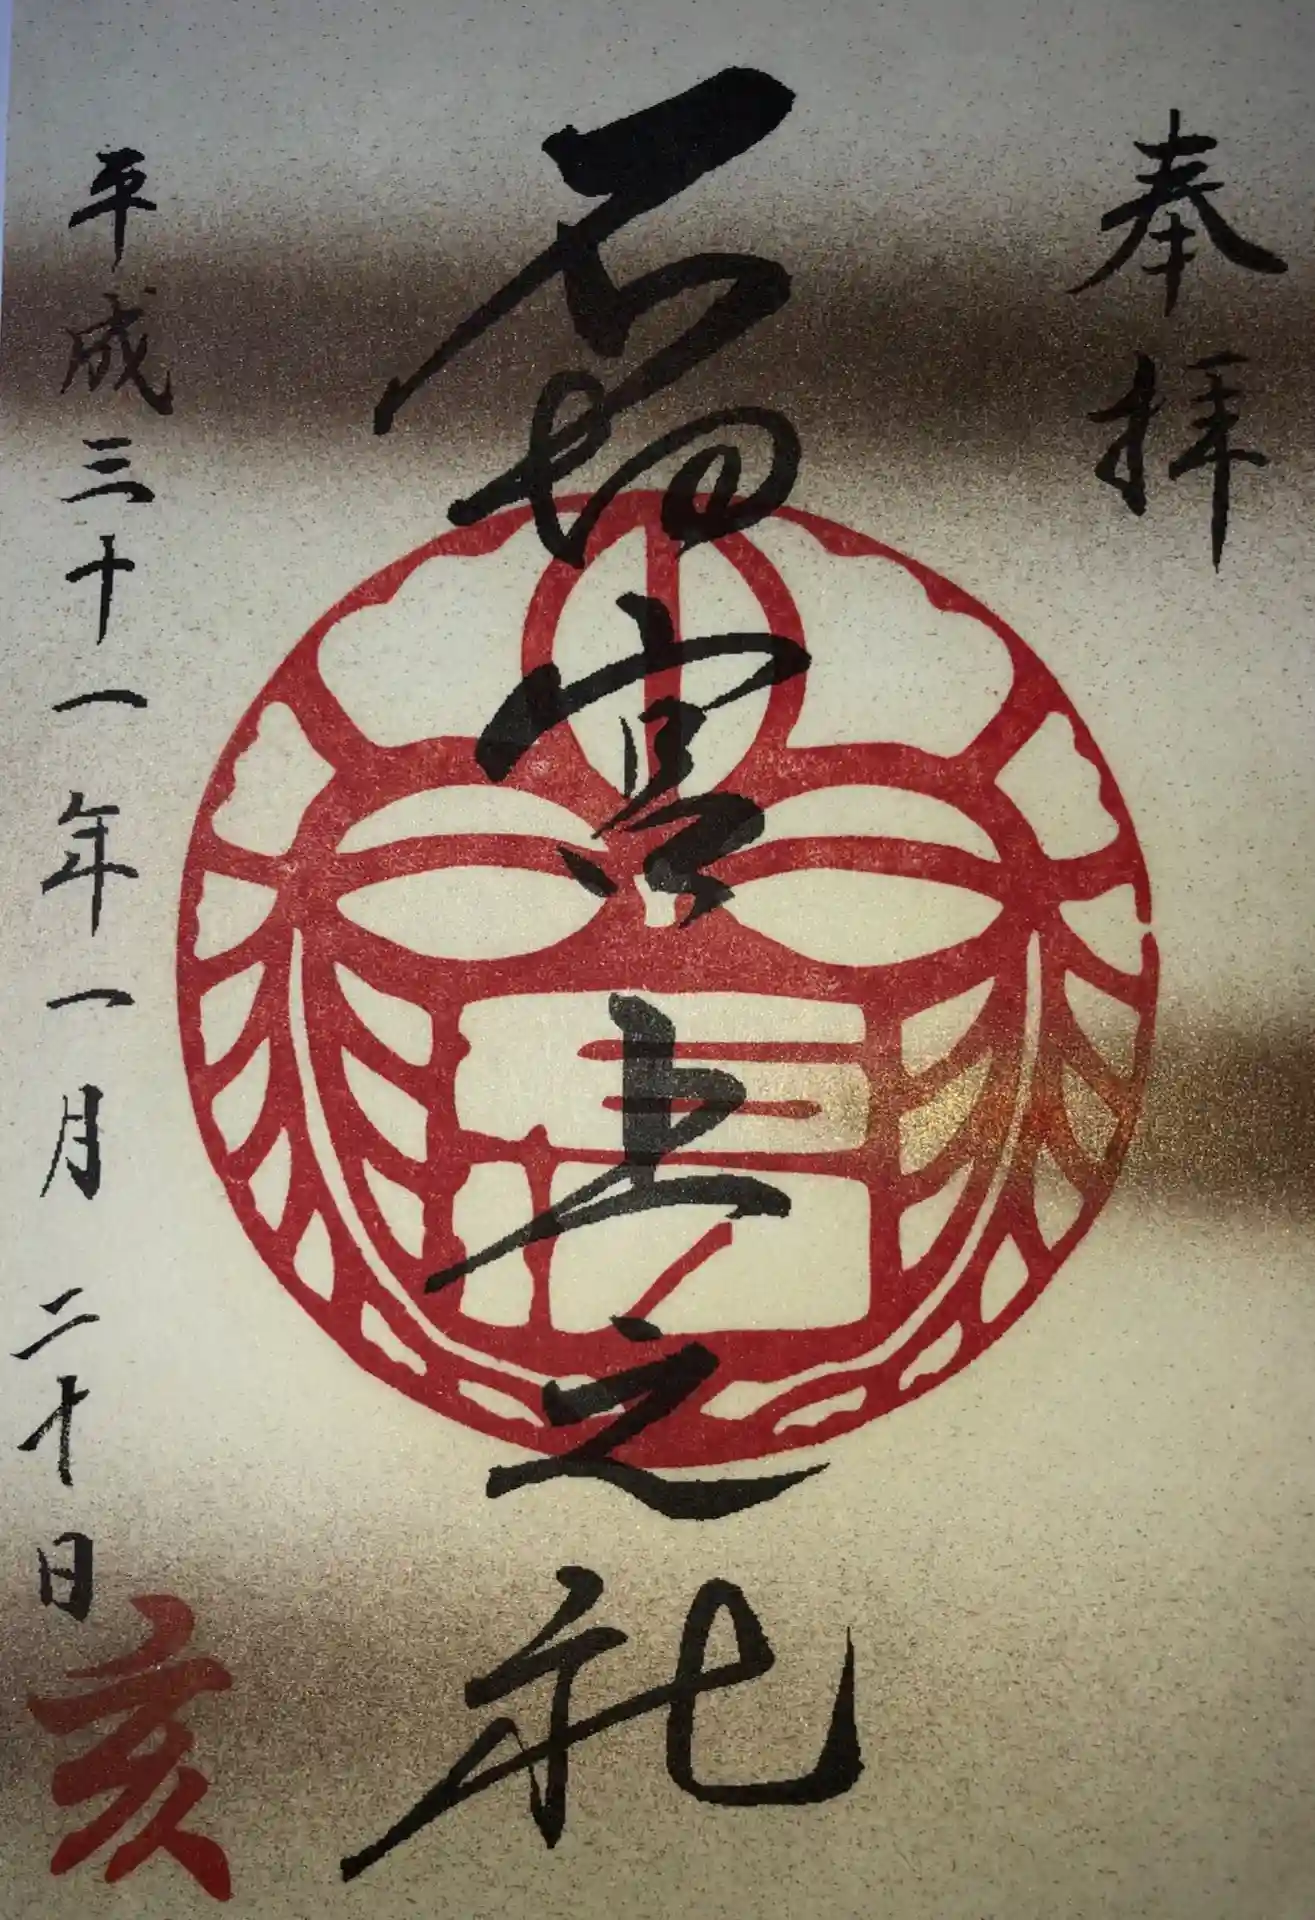 奉拝
石切宮上之社
平成三十一年一月二十日
亥